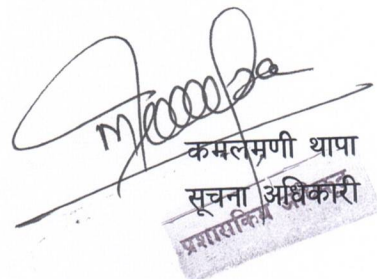 कमलमणी थापा
सूचना अधिकारी
प्रशासकिय